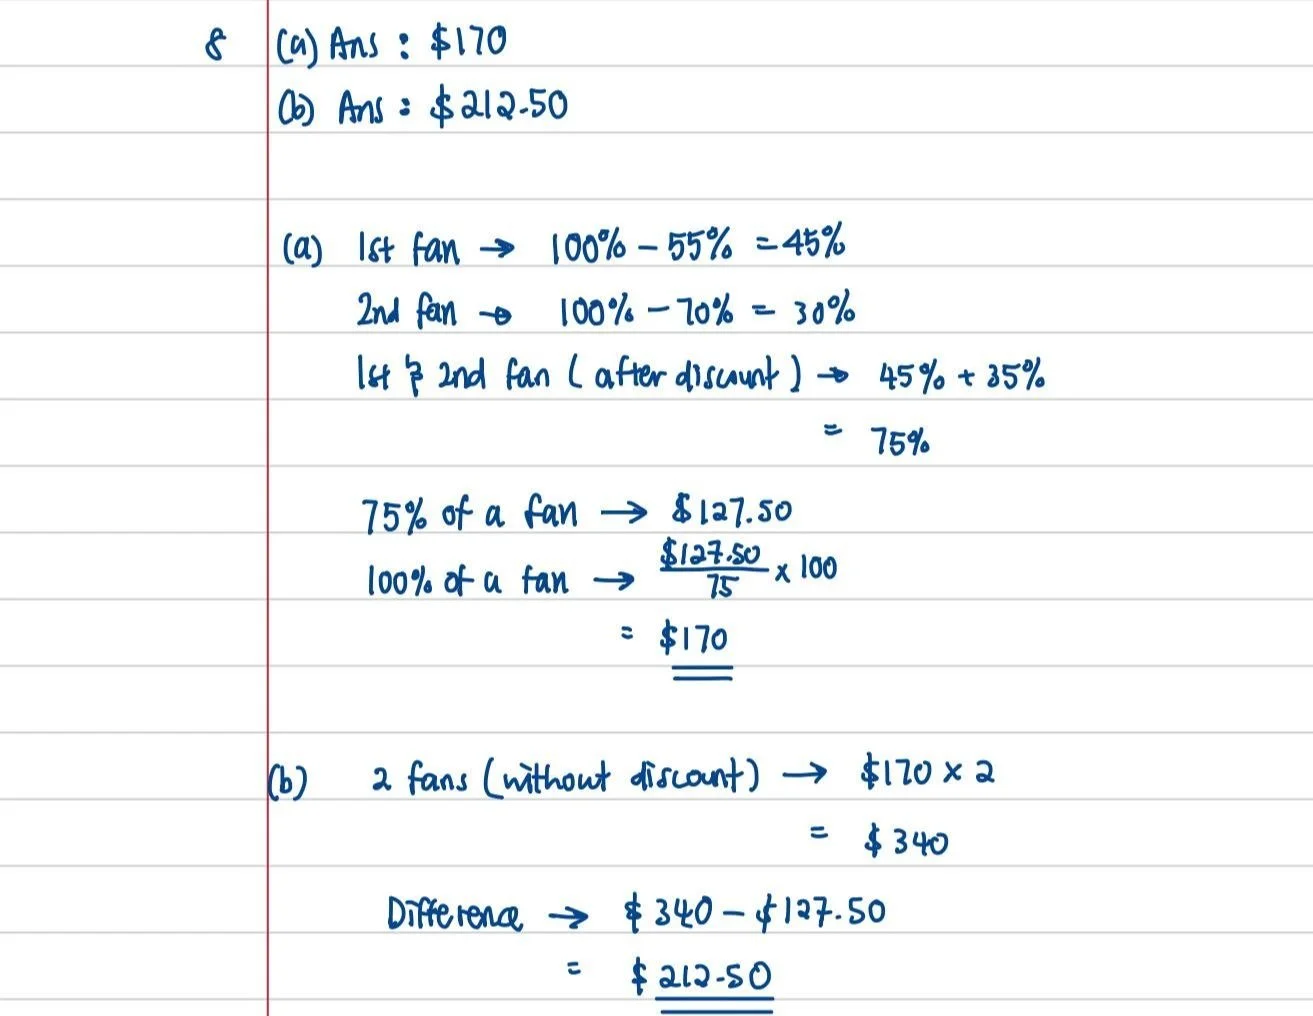 8 (a) Ans : $170
(b) Ans : $212.50
(a) 1st fan → 100% - 55% = 45%
2nd fan → 100% - 70% = 30%
1st & 2nd fan (after discount) → 45% + 35%
= 75%
75% of a fan → $127.50
100% of a fan → $127.50/75 x 100
= $170
(b) 2 fans (without discount) → $170 x 2
= $340
Difference → $340 - $127.50
= $212.50